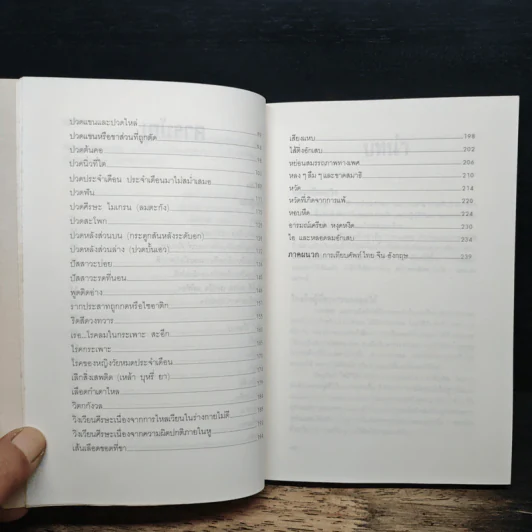 ปวดแขนและปวดไหล่
ปวดแขนหรือขาส่วนที่ถูกตัด
ปวดต้นคอ
ปวดนิ่วที่ไต
ปวดประจำเดือน ประจำเดือนมาไม่สม่ำเสมอ
ปวดฟัน
ปวดศีรษะ ไมเกรน (ลมตะกัง)
ปวดสะโพก
ปวดหลังส่วนบน (กระดูกสันหลังระดับอก)
ปวดหลังส่วนล่าง (ปวดบั้นเอว)
ปัสสาวะบ่อย
ปัสสาวะรดที่นอน
พูดติดอ่าง
รากประสาทถูกกดหรือไซอาติก
ริดสีดวงทวาร
เรอ...โรคลมในกระเพาะ สะอึก
โรคกระเพาะ
โรคของหญิงวัยหมดประจำเดือน
เลิกสิ่งเสพติด (เหล้า บุหรี่ ยา)
เลือดกำเดาไหล
วิตกกังวล
วิงเวียนศีรษะเนื่องจากการไหลเวียนในร่างกายไม่ดี
วิงเวียนศีรษะเนื่องจากความผิดปกติภายในหู
เส้นเลือดขอดที่ขา
เสียงแหบ 198
ไส้ติ่งอักเสบ 202
หย่อนสมรรถภาพทางเพศ 206
หลง ๆ ลืม ๆ และขาดสมาธิ 210
หวัด 214
หวัดที่เกิดจากการแพ้ 220
หอบหืด 224
อารมณ์เครียด หงุดหงิด 230
ไอ และหลอดลมอักเสบ 234
ภาคผนวก การเทียบศัพท์ ไทย จีน อังกฤษ 239